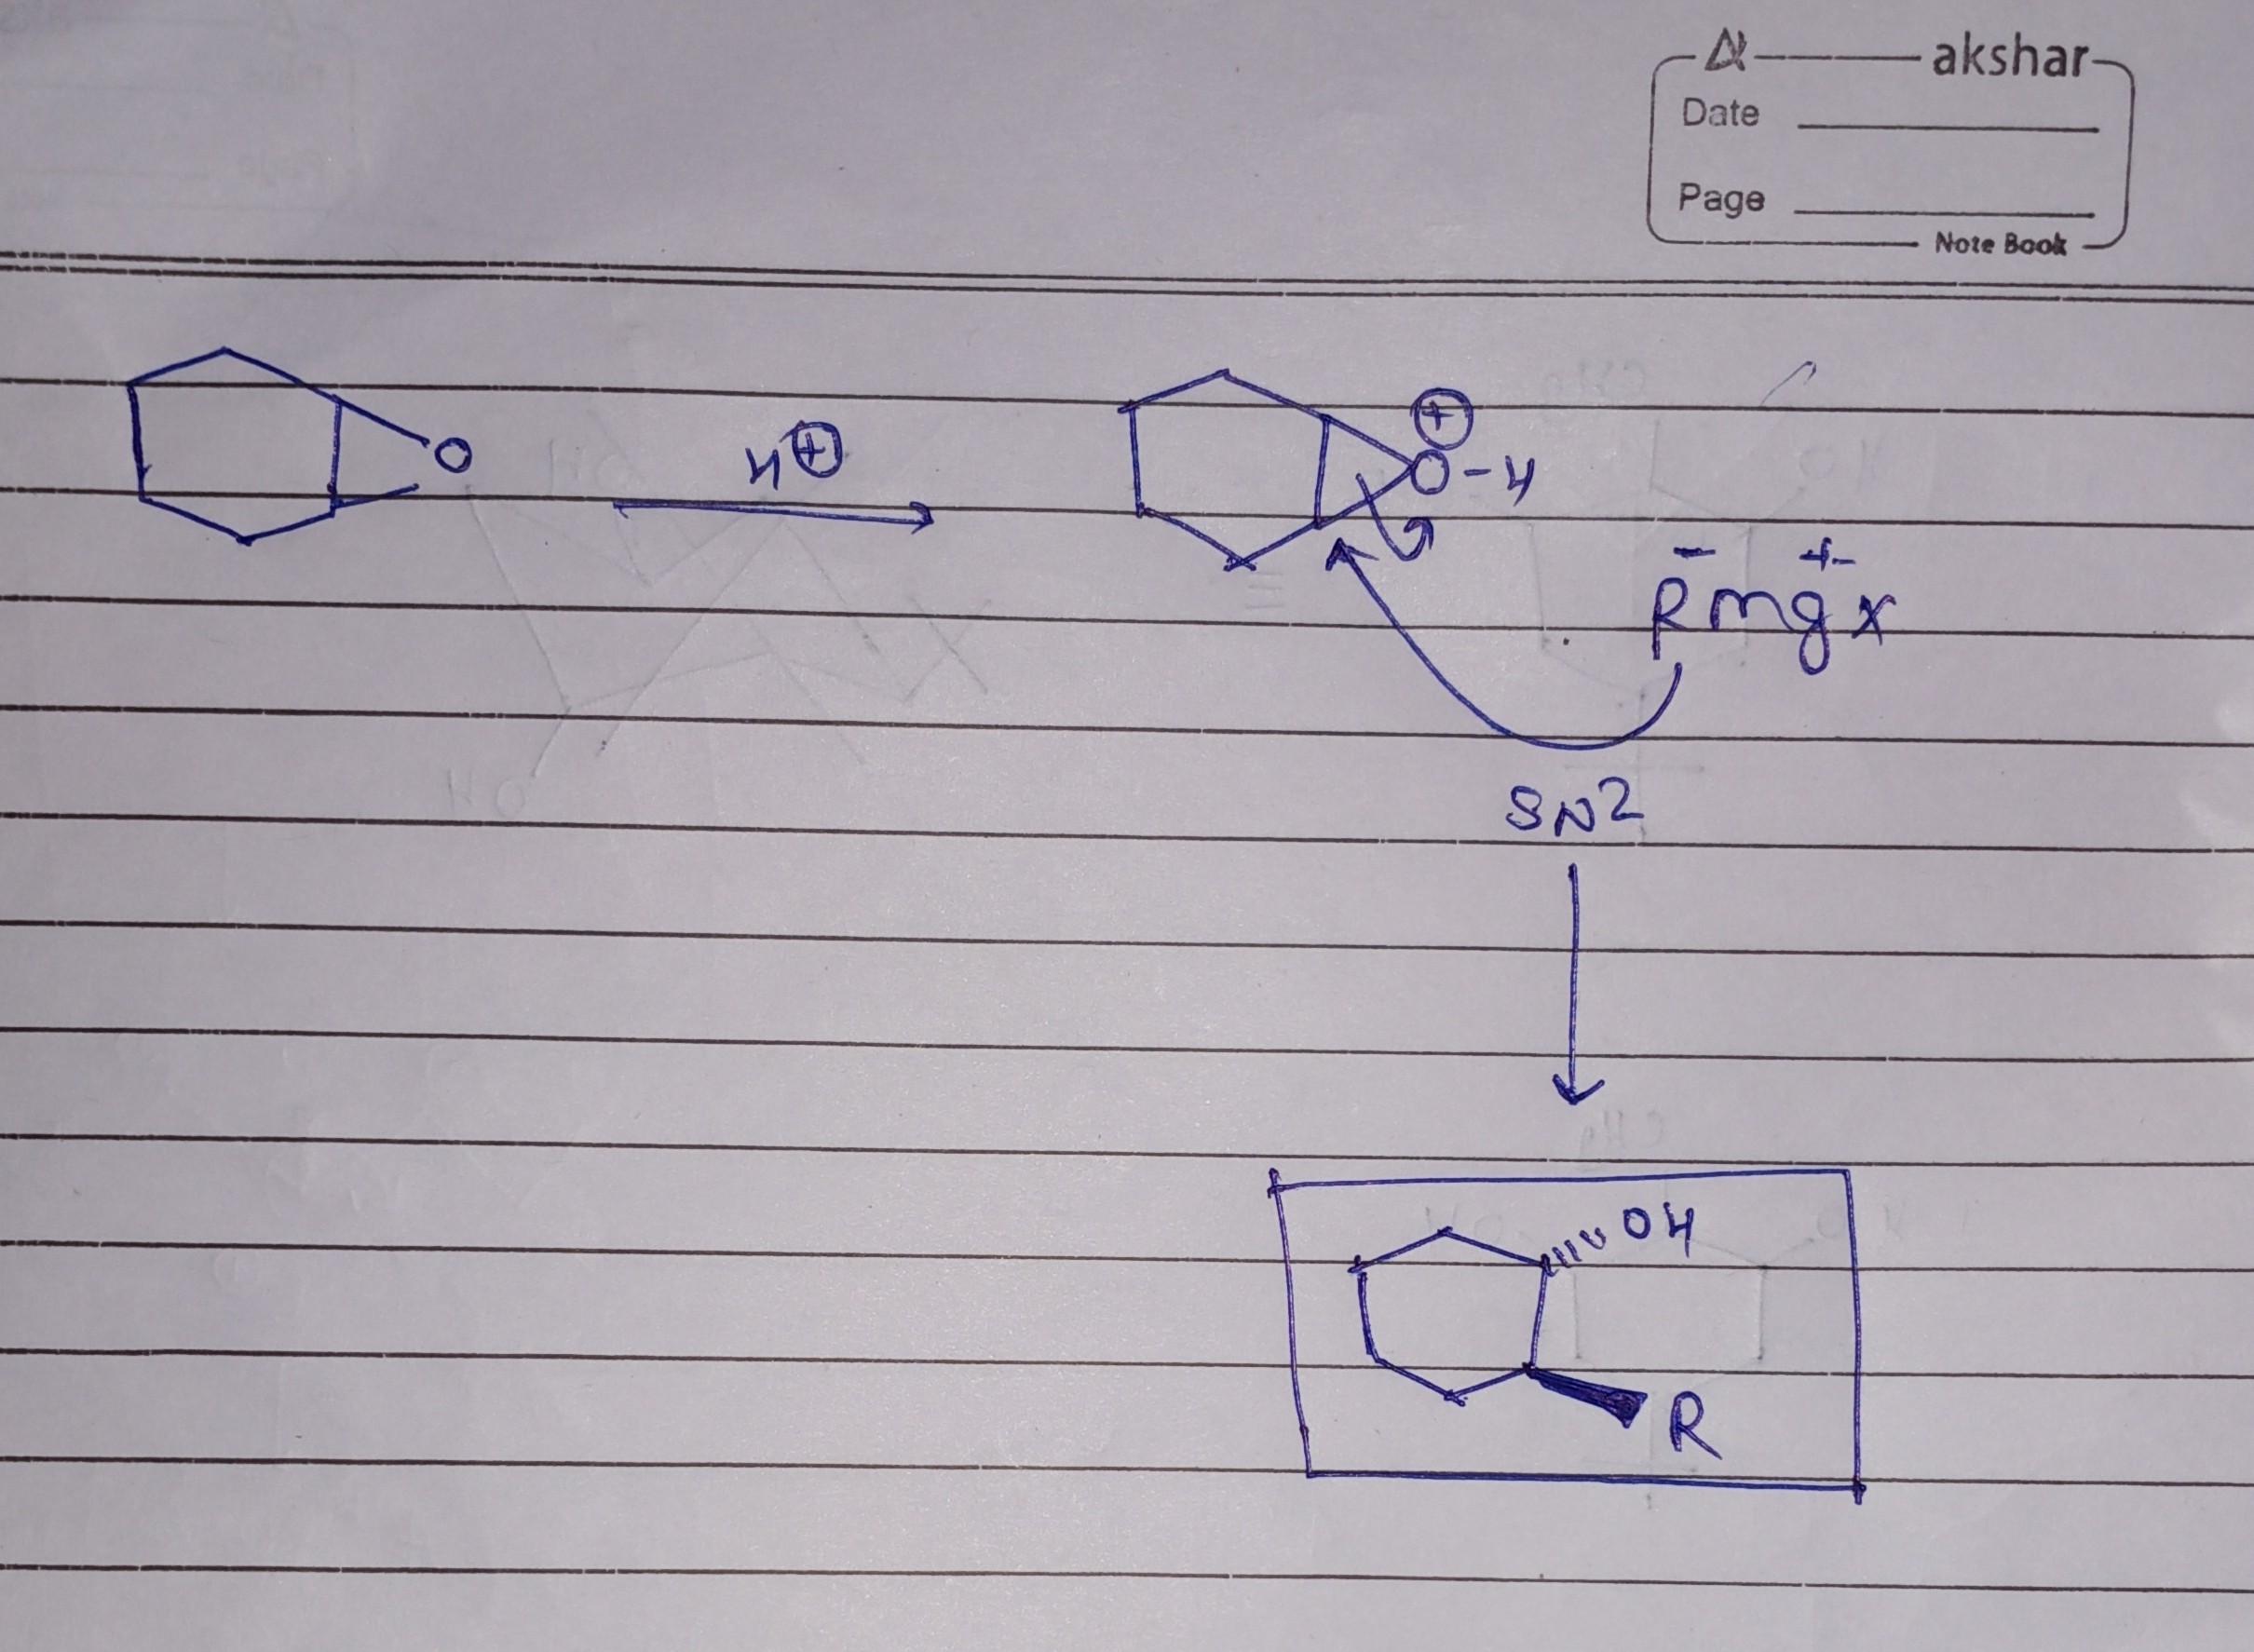 akshar
Date
Page
Note Book
O
H⊕
⊕
O-H
- +
RmgX
SN2
OH
R